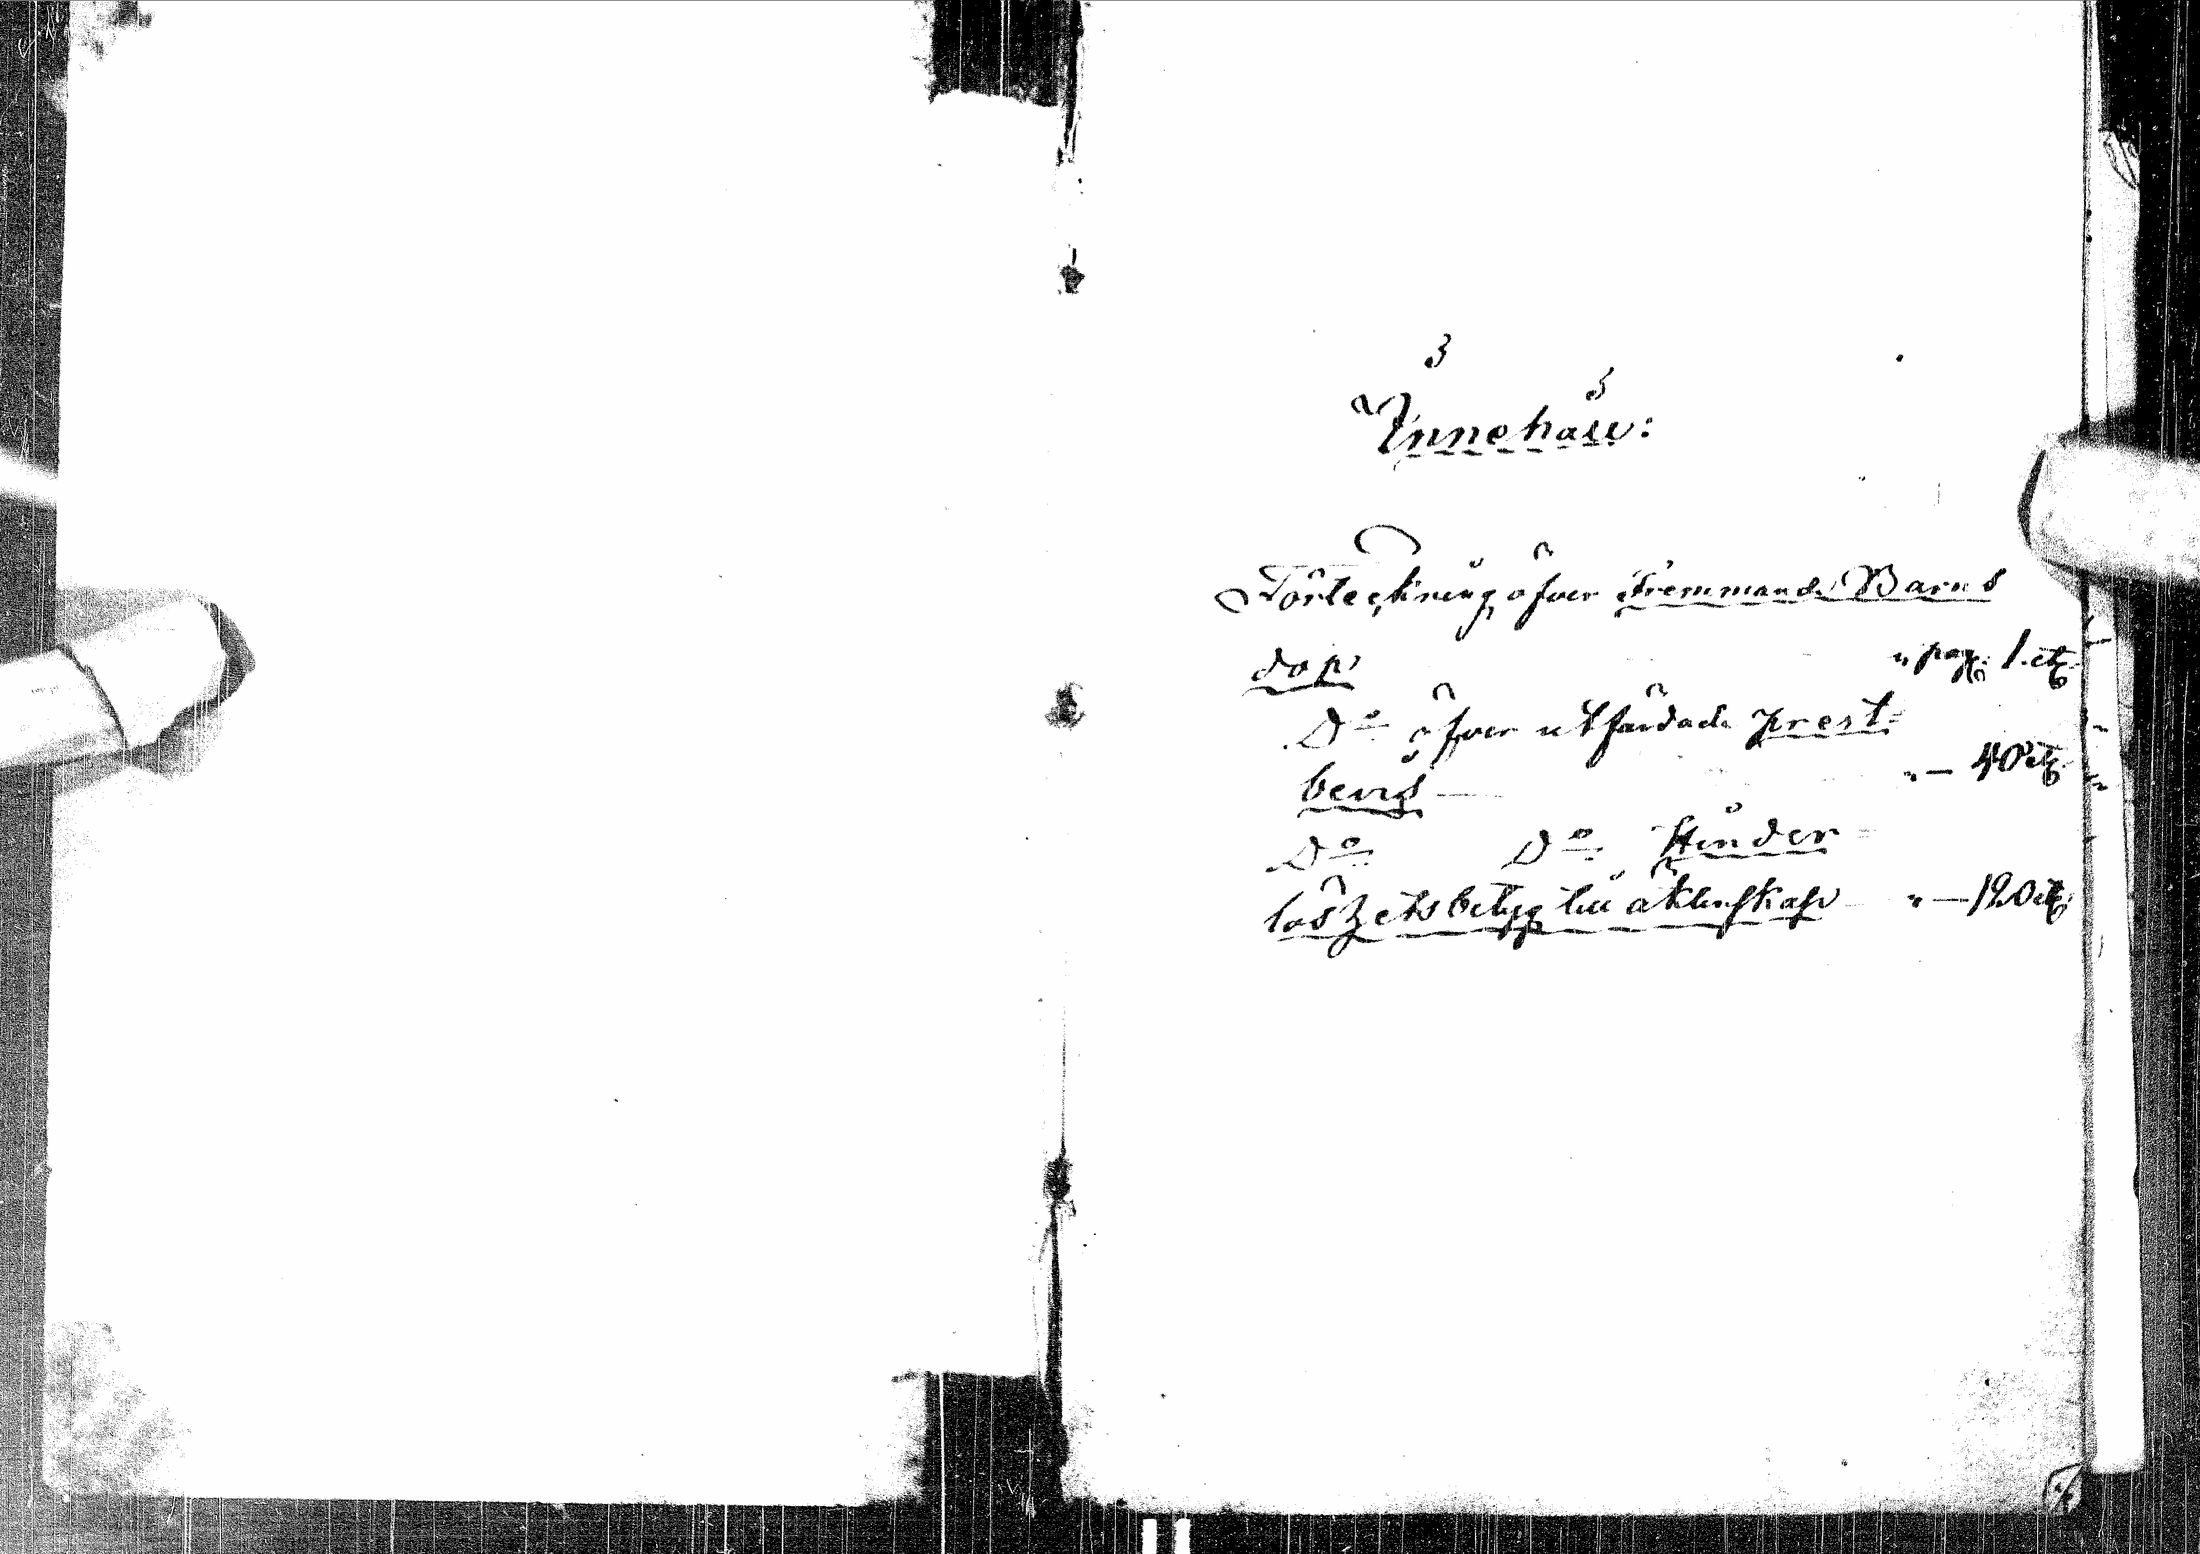 Innehåll:
Förteckning öfver Främmande Barns
dop " pag. 1. etc.
Do öfver utfärdade prest=
bevis — " — 40 etc.
Do Do Hinder=
löshetsbetyg till äktenskap " — 120 etc.